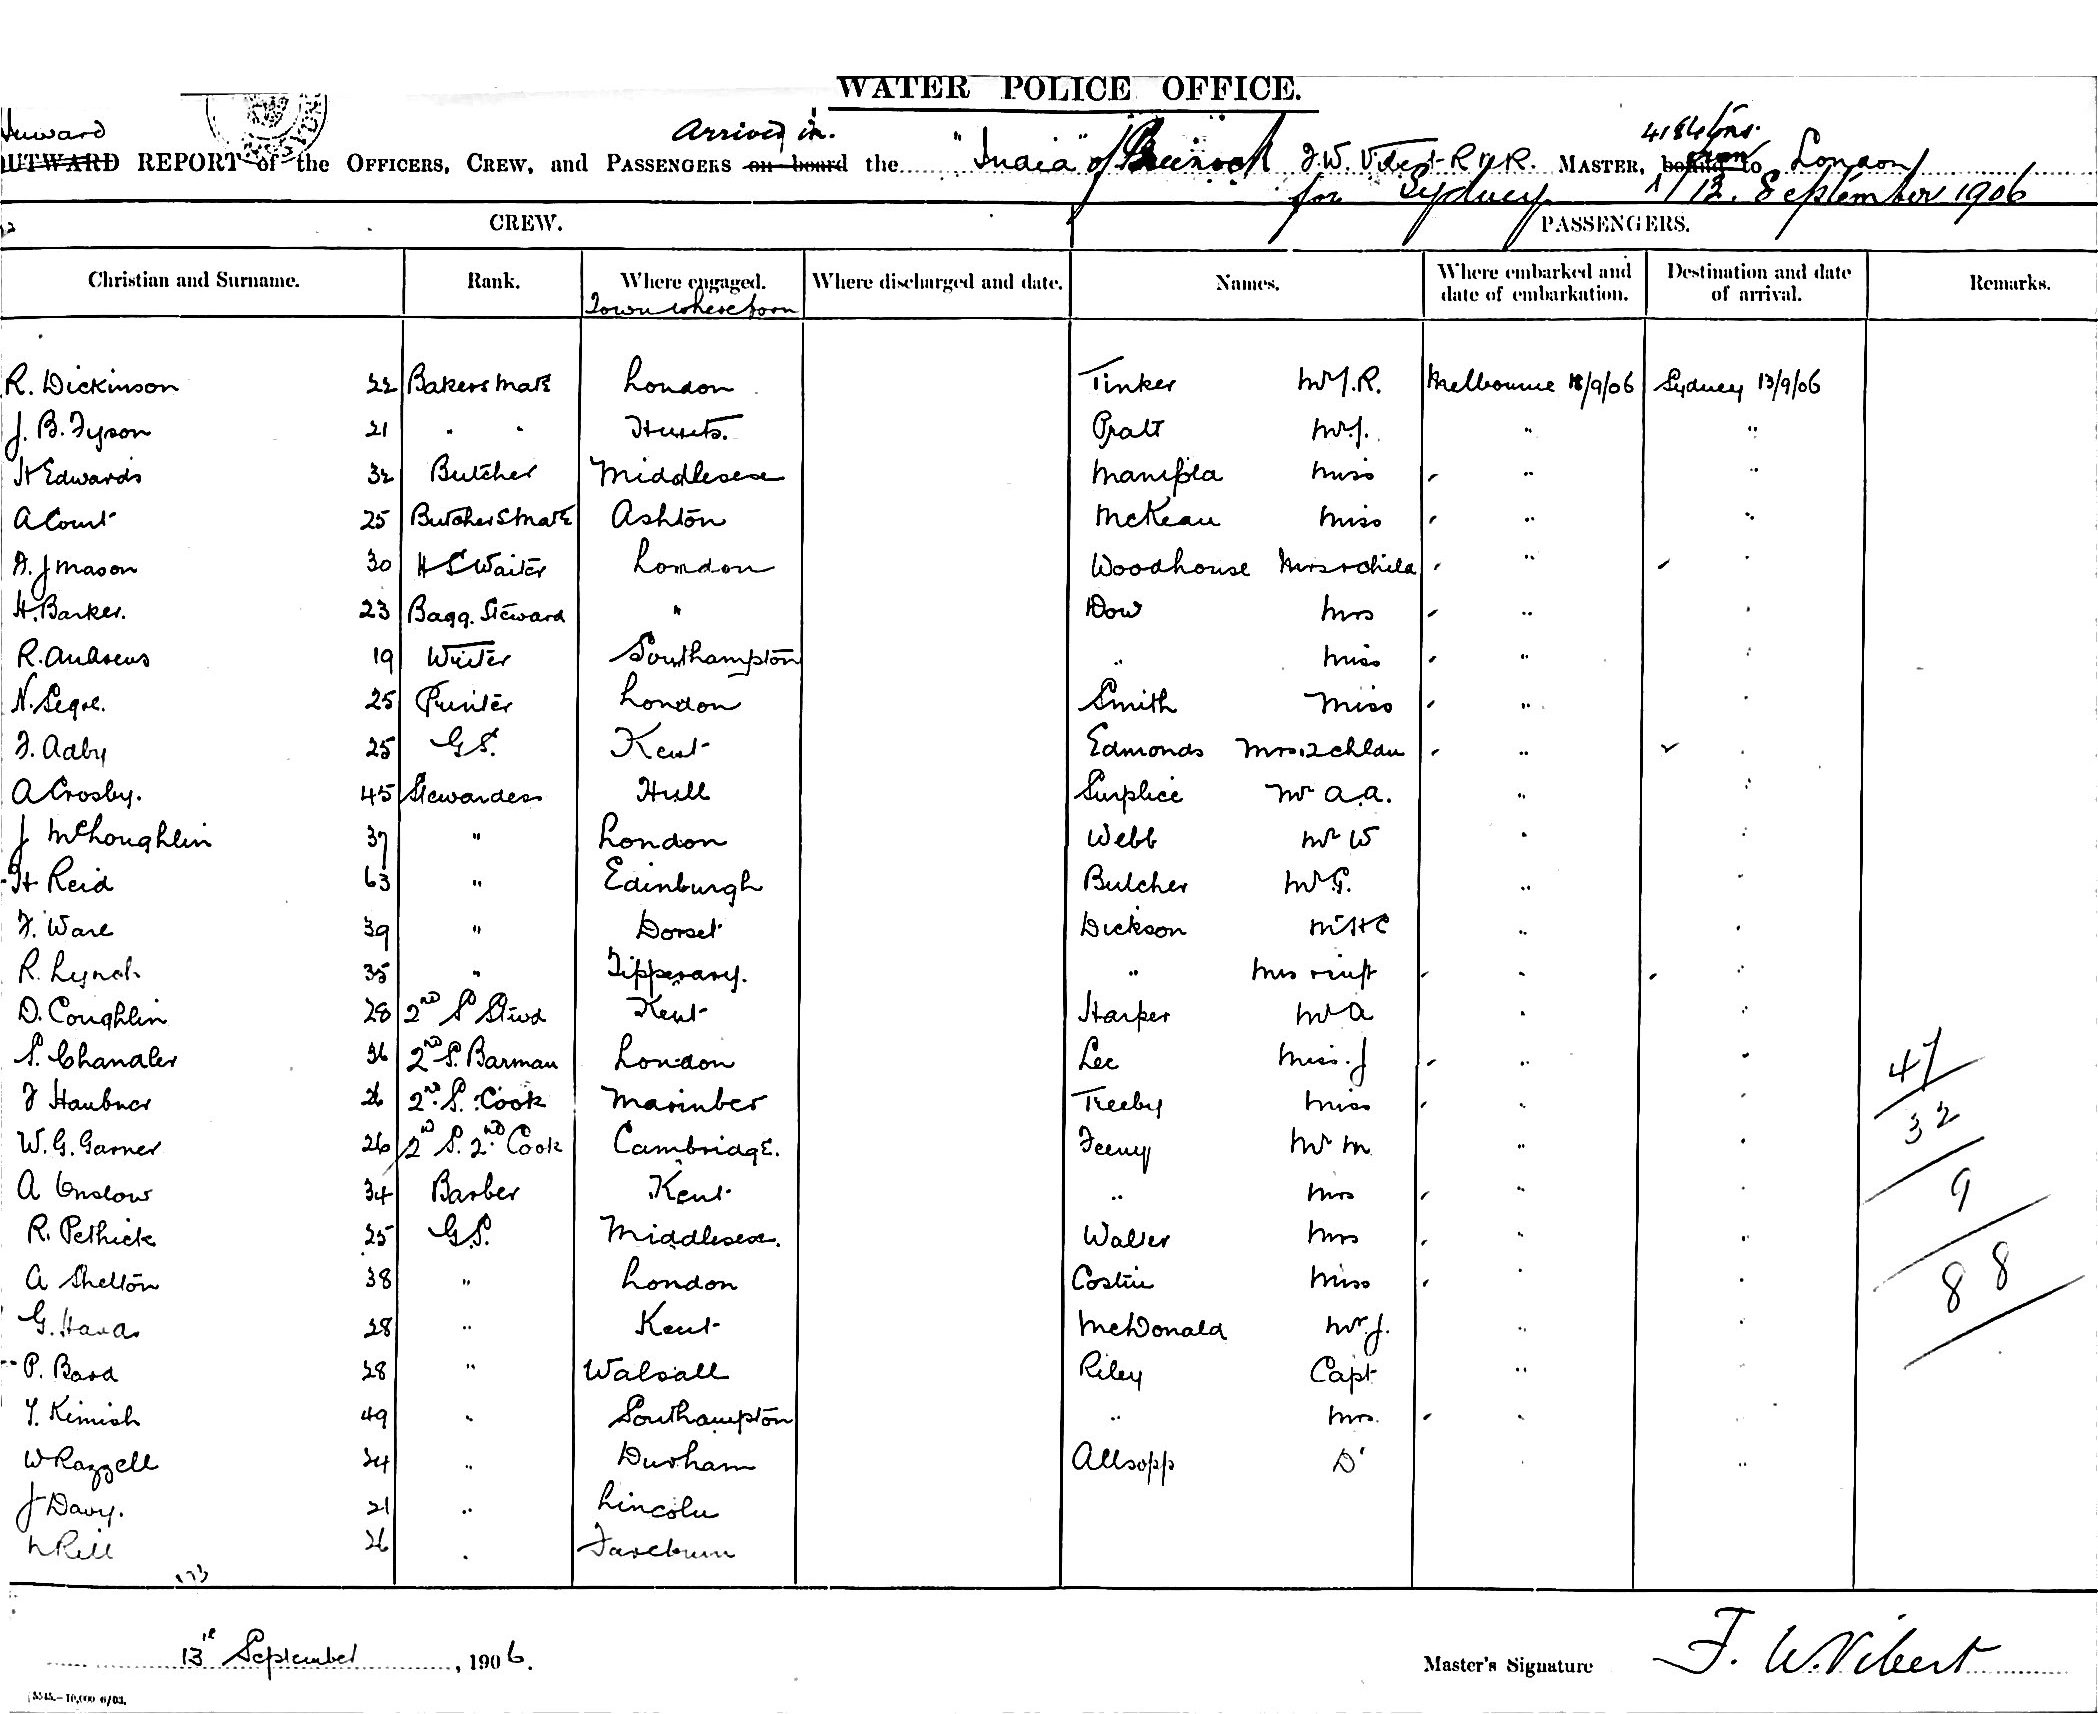 WATER POLICE OFFICE.
Inward Arrived in. 4184 tons.
OUTWARD REPORT of the OFFICERS, CREW, and PASSENGERS on board the "India" of Greenock F.W. Vibert R.N.R. MASTER, bound to London
for Sydney 13 September 1906
CREW. PASSENGERS.
Christian and Surname. Rank. Where engaged. Where discharged and date. Names. Where embarked and date of embarkation. Destination and date of arrival. Remarks.
Town where born
R. Dickinson 22 Bakers Mate London Tinker Mr J.R. Melbourne /9/06 Sydney 13/9/06
J. B. Tyson 21 " " Hunts. Pratt Mr J. " "
H Edwards 32 Butcher Middlesex Manifold Miss " "
A Court 25 Butchers Mate Ashton McKeau Miss " "
F. J Mason 30 H S Waiter London Woodhouse Mrs & child " "
H. Barker. 23 Bagg. Steward " Dow Mrs " "
R. Andrews 19 Writer Southampton " Miss " "
N. Segre. 25 Printer London Smith Miss " "
F. Adby 25 G.S. Kent Edmonds Mrs & 2 chldn " "
A Crosby. 45 Stewardess Hull Surplice Mr A.A. " "
J McLoughlin 37 " London Webb Mr W " "
H Reid 63 " Edinburgh Butcher Mr G. " "
F. Ware 39 " Dorset Dickson Mr H C " "
R. Lynch 35 " Tipperary. " Mrs & inft " "
D. Coughlin 28 2nd S Stwd Kent Harper Mr A " "
S. Chandler 36 2nd S. Barman London Lee Miss. J " "
F Haubner 26 2nd S. Cook Treeby Miss " "
W. G. Garner 26 2nd S. 2nd Cook Cambridge. Feeny Mr M " "
A Onslow 34 Barber Kent " Mrs " "
R. Pethick 25 G.S. Middlesex. Walter Mrs " "
A Shelton 38 " London Costin Miss " "
G. Hands 28 " Kent McDonald Mr J. " "
P. Bard 28 " Walsall Riley Capt " "
T. Kimish 49 " Southampton " Mrs. " "
W Razzell 24 " Durham Allsopp Dr " "
J Davy. 21 " Lincoln
Rill 26 "
47
32
9
88
173
13th September, 1906. Master's Signature F. W. Vibert
[5545.—10,000 6/03.